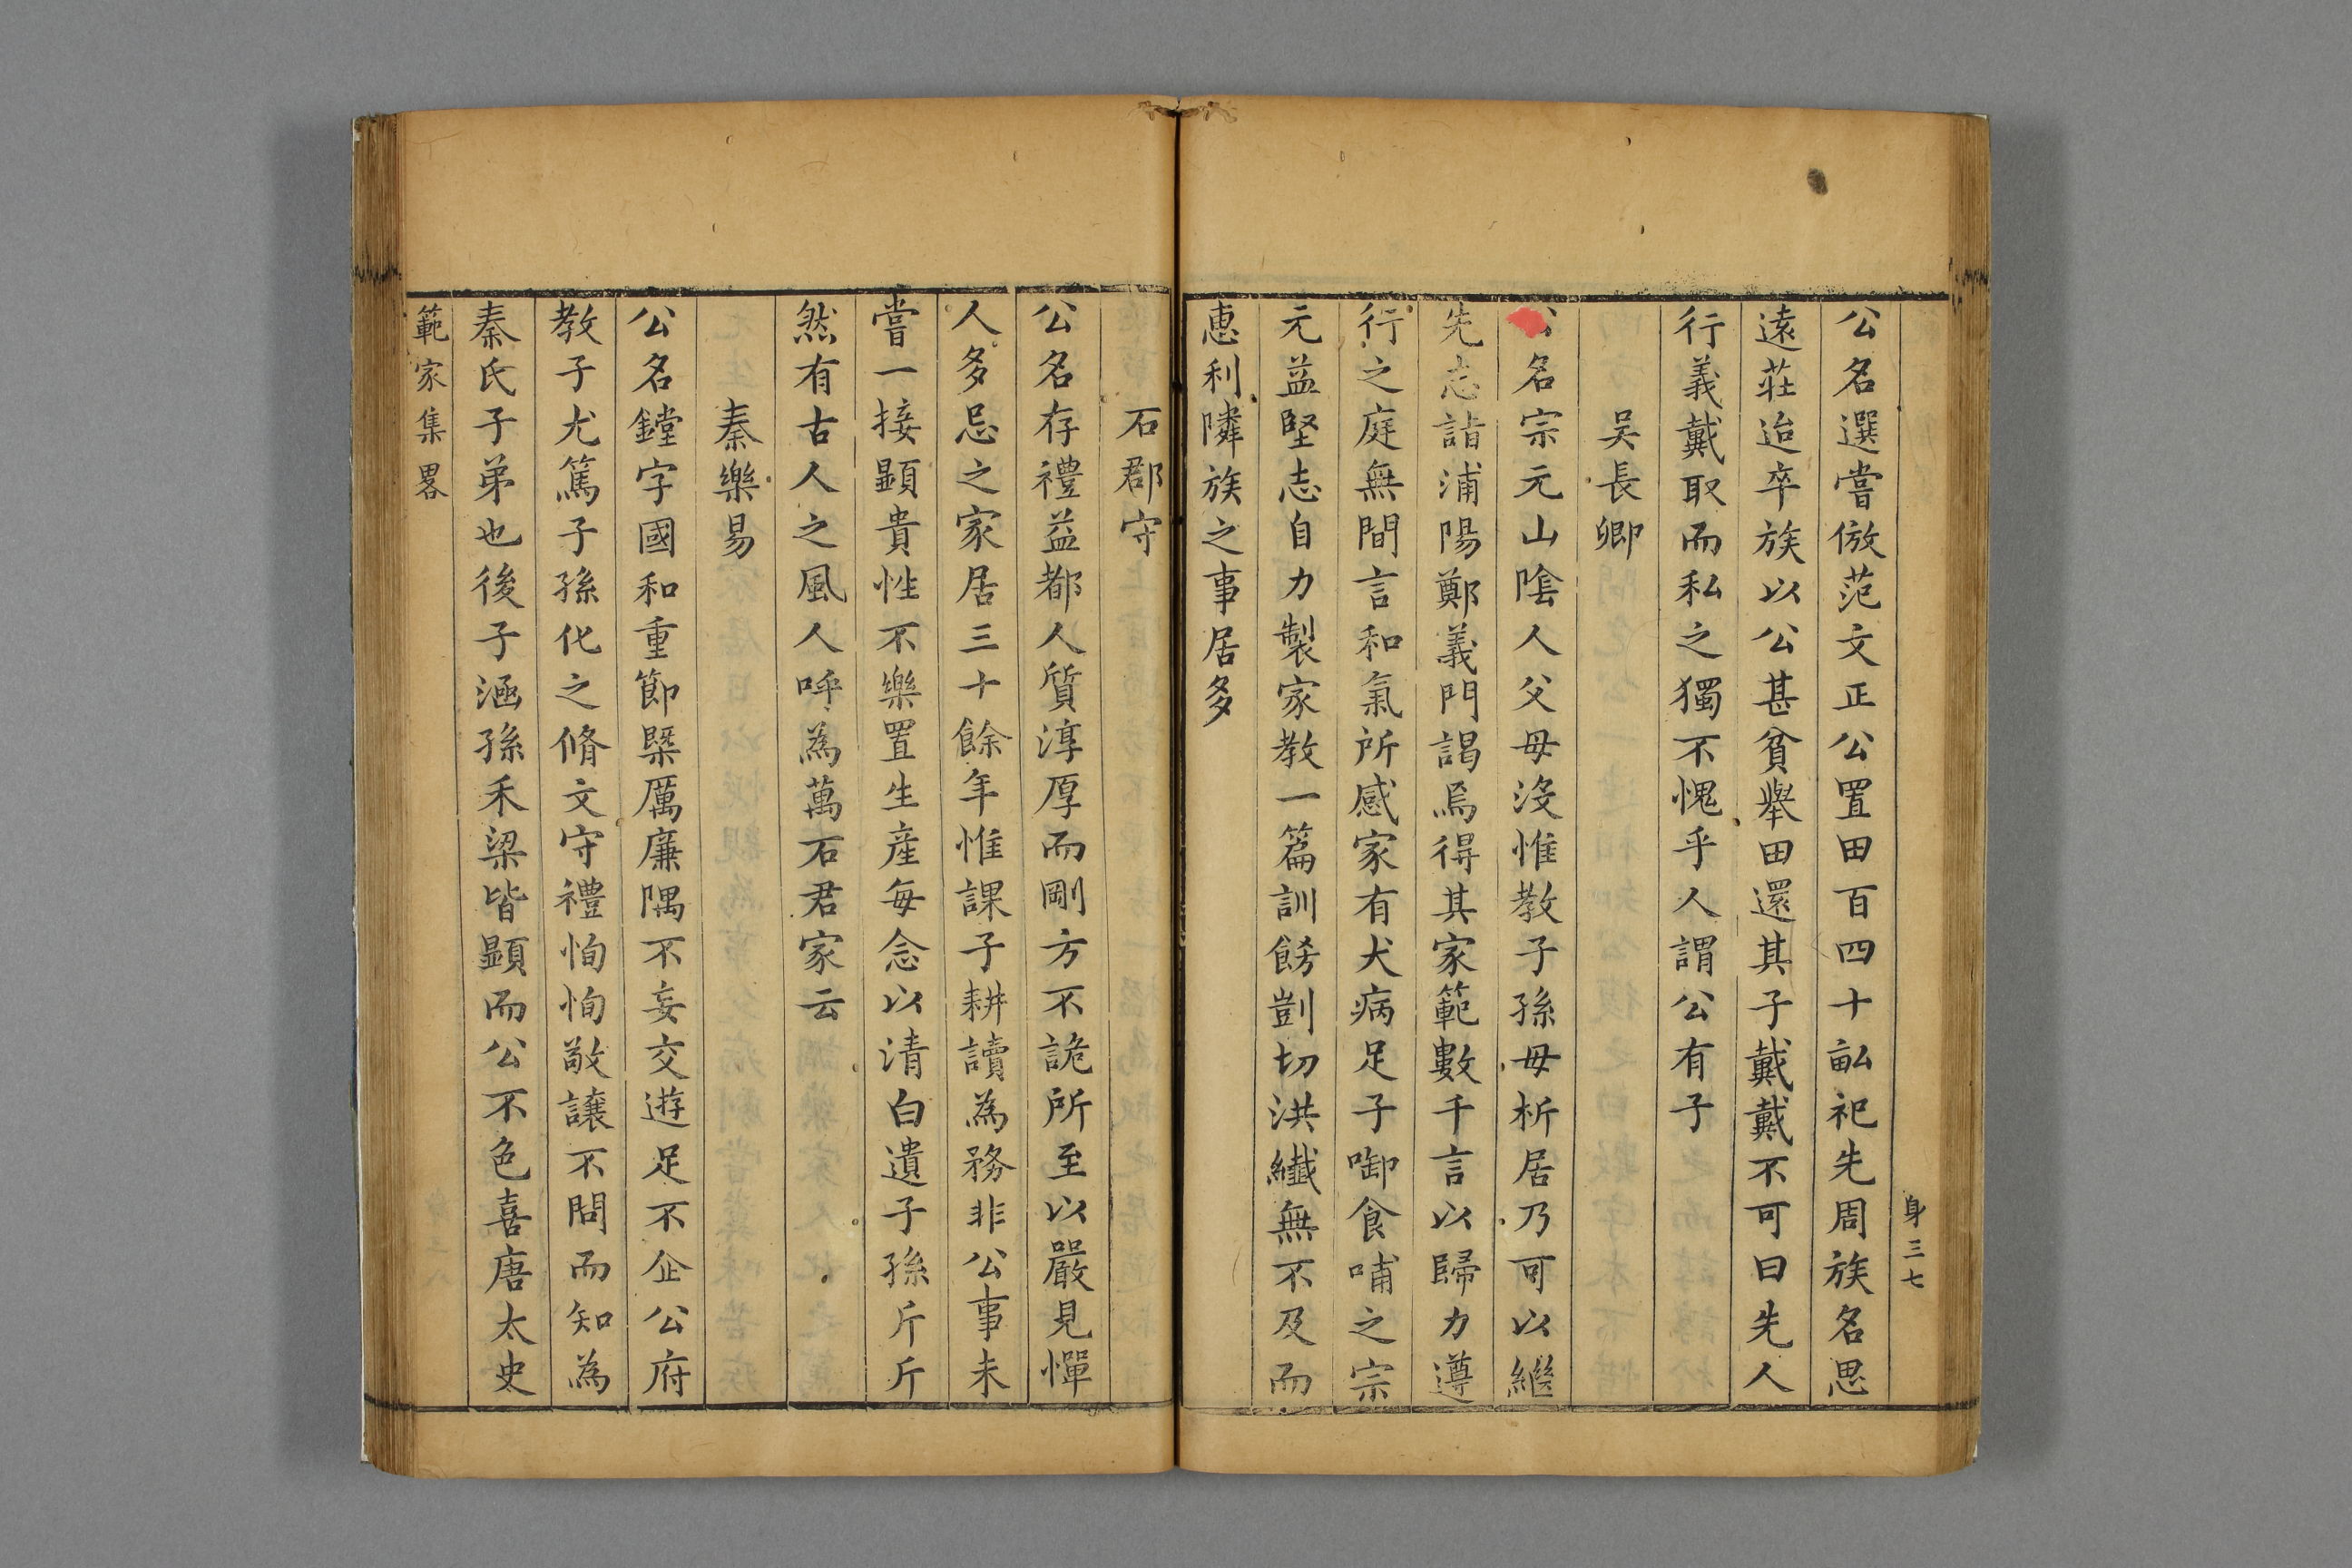 身三七
公名選嘗倣范文正公置田百四十畝祀先周族名思
遠莊迨卒族以公甚貧舉田還其子戴戴不可曰先人
行義戴取而私之獨不愧乎人謂公有子
吳長卿
公名宗元山陰人父母沒惟教子孫毋析居乃可以繼
先志詣浦陽鄭義門謁焉得其家範數千言以歸力遵
行之庭無間言和氣所感家有犬病足子啣食哺之宗
元益堅志自力製家教一篇訓飭剴切洪纖無不及而
惠利隣族之事居多
石郡守
公名存禮益都人質淳厚而剛方不詭所至以嚴見憚
人多忌之家居三十餘年惟課子耕讀為務非公事未
嘗一接顯貴性不樂置生産每念以清白遺子孫斤斤
然有古人之風人呼為萬石君家云
秦樂易
公名鏜字國和重節槩厲廉隅不妄交遊足不企公府
教子尤篤子孫化之脩文守禮恂恂敬讓不問而知為
秦氏子弟也後子涵孫禾梁皆顯而公不色喜唐太史
範家集畧